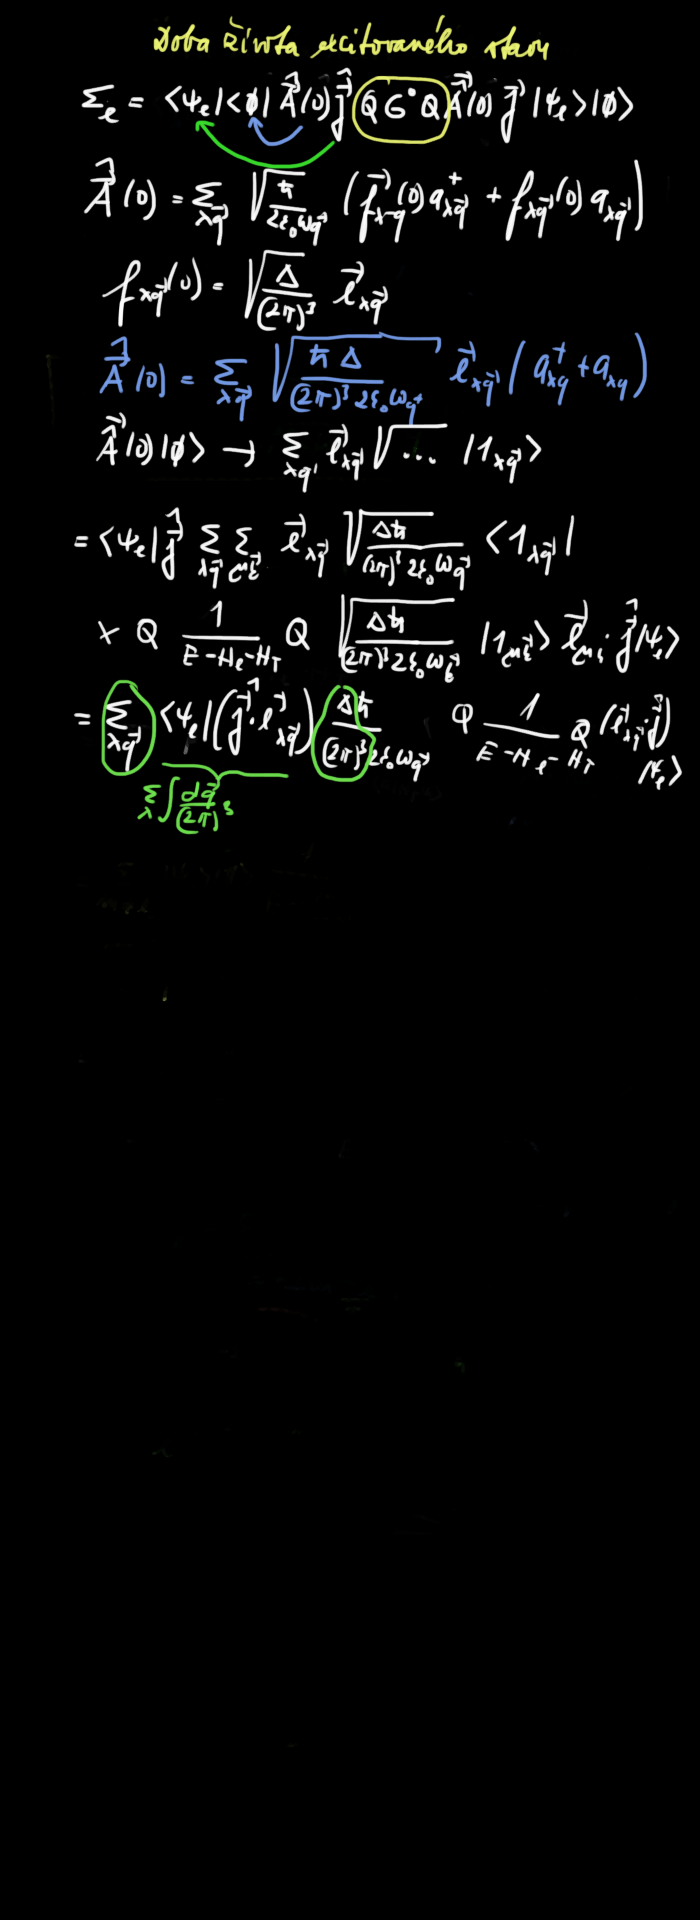 Doba života excitovaného stavu
Σ_e = <ψ_e|<ϕ| \hat{\vec{A}}(0) \hat{\vec{j}} Q G° Q \hat{\vec{A}}(0) \hat{\vec{j}} |ψ_e>|ϕ>
\hat{\vec{A}}(0) = Σ_{λ\vec{q}} √(ħ / 2ε₀ω_{\vec{q}}) (\vec{f}_{λ-q}(0) a⁺_{λ\vec{q}} + f_{λ\vec{q}}(0) a_{λ\vec{q}})
f_{λ\vec{q}}(0) = √(Δ / (2π)³) \vec{e}_{λ\vec{q}}
\hat{\vec{A}}(0) = Σ_{λ\vec{q}} √(ħ Δ / (2π)³ 2ε₀ω_q) \vec{e}_{λ\vec{q}} (a⁺_{λq} + a_{λq})
\hat{\vec{A}}(0)|ϕ> → Σ_{λq} \vec{e}_{λ\vec{q}} √... |1_{λ\vec{q}}>
= <ψ_e| \hat{\vec{j}} Σ_{λ\vec{q}} Σ_{μ\vec{k}} \vec{e}_{λ\vec{q}} √(Δħ / (2π)³ 2ε₀ω_{\vec{q}}) <1_{λ\vec{q}}|
× Q 1 / (E - H_e - H_T) Q √(Δħ / (2π)³ 2ε₀ω_{\vec{k}}) |1_{μ\vec{k}}> \vec{e}_{μ\vec{k}} · \hat{\vec{j}} |ψ_e>
= Σ_{λ\vec{q}} <ψ_e| (\hat{\vec{j}} · \vec{e}_{λ\vec{q}}) Δħ / (2π)³ 2ε₀ω_{\vec{q}} Q 1 / (E - H_e - H_T) Q (\vec{e}_{λ\vec{q}} · \hat{\vec{j}}) |ψ_e>
Σ_λ ∫ d\vec{q} / (2π)³